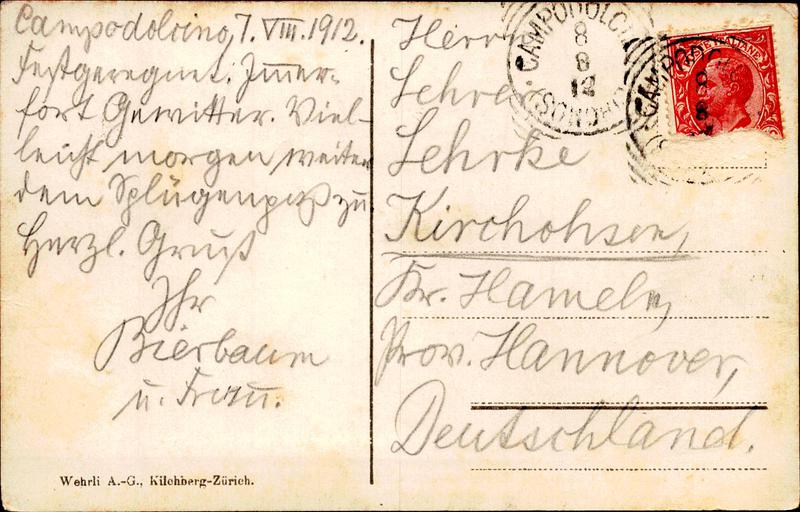 Campodolcino, 7. VIII. 1912.
Festgeregnet. Immer-
fort Gewitter. Viel-
leicht morgen weiter
dem Splügenpaß zu.
Herzl. Gruß
Ihr
Bierbaum
u. Frau.
Wehrli A.-G., Kilchberg-Zürich.
Herrn
Lehrer
Lehrke
Kirchohsen,
Kr. Hameln,
Prov. Hannover,
Deutschland.
CAMPODOLCI
8
8
12
(SONDRIO)
CAMPODOLC
8
8